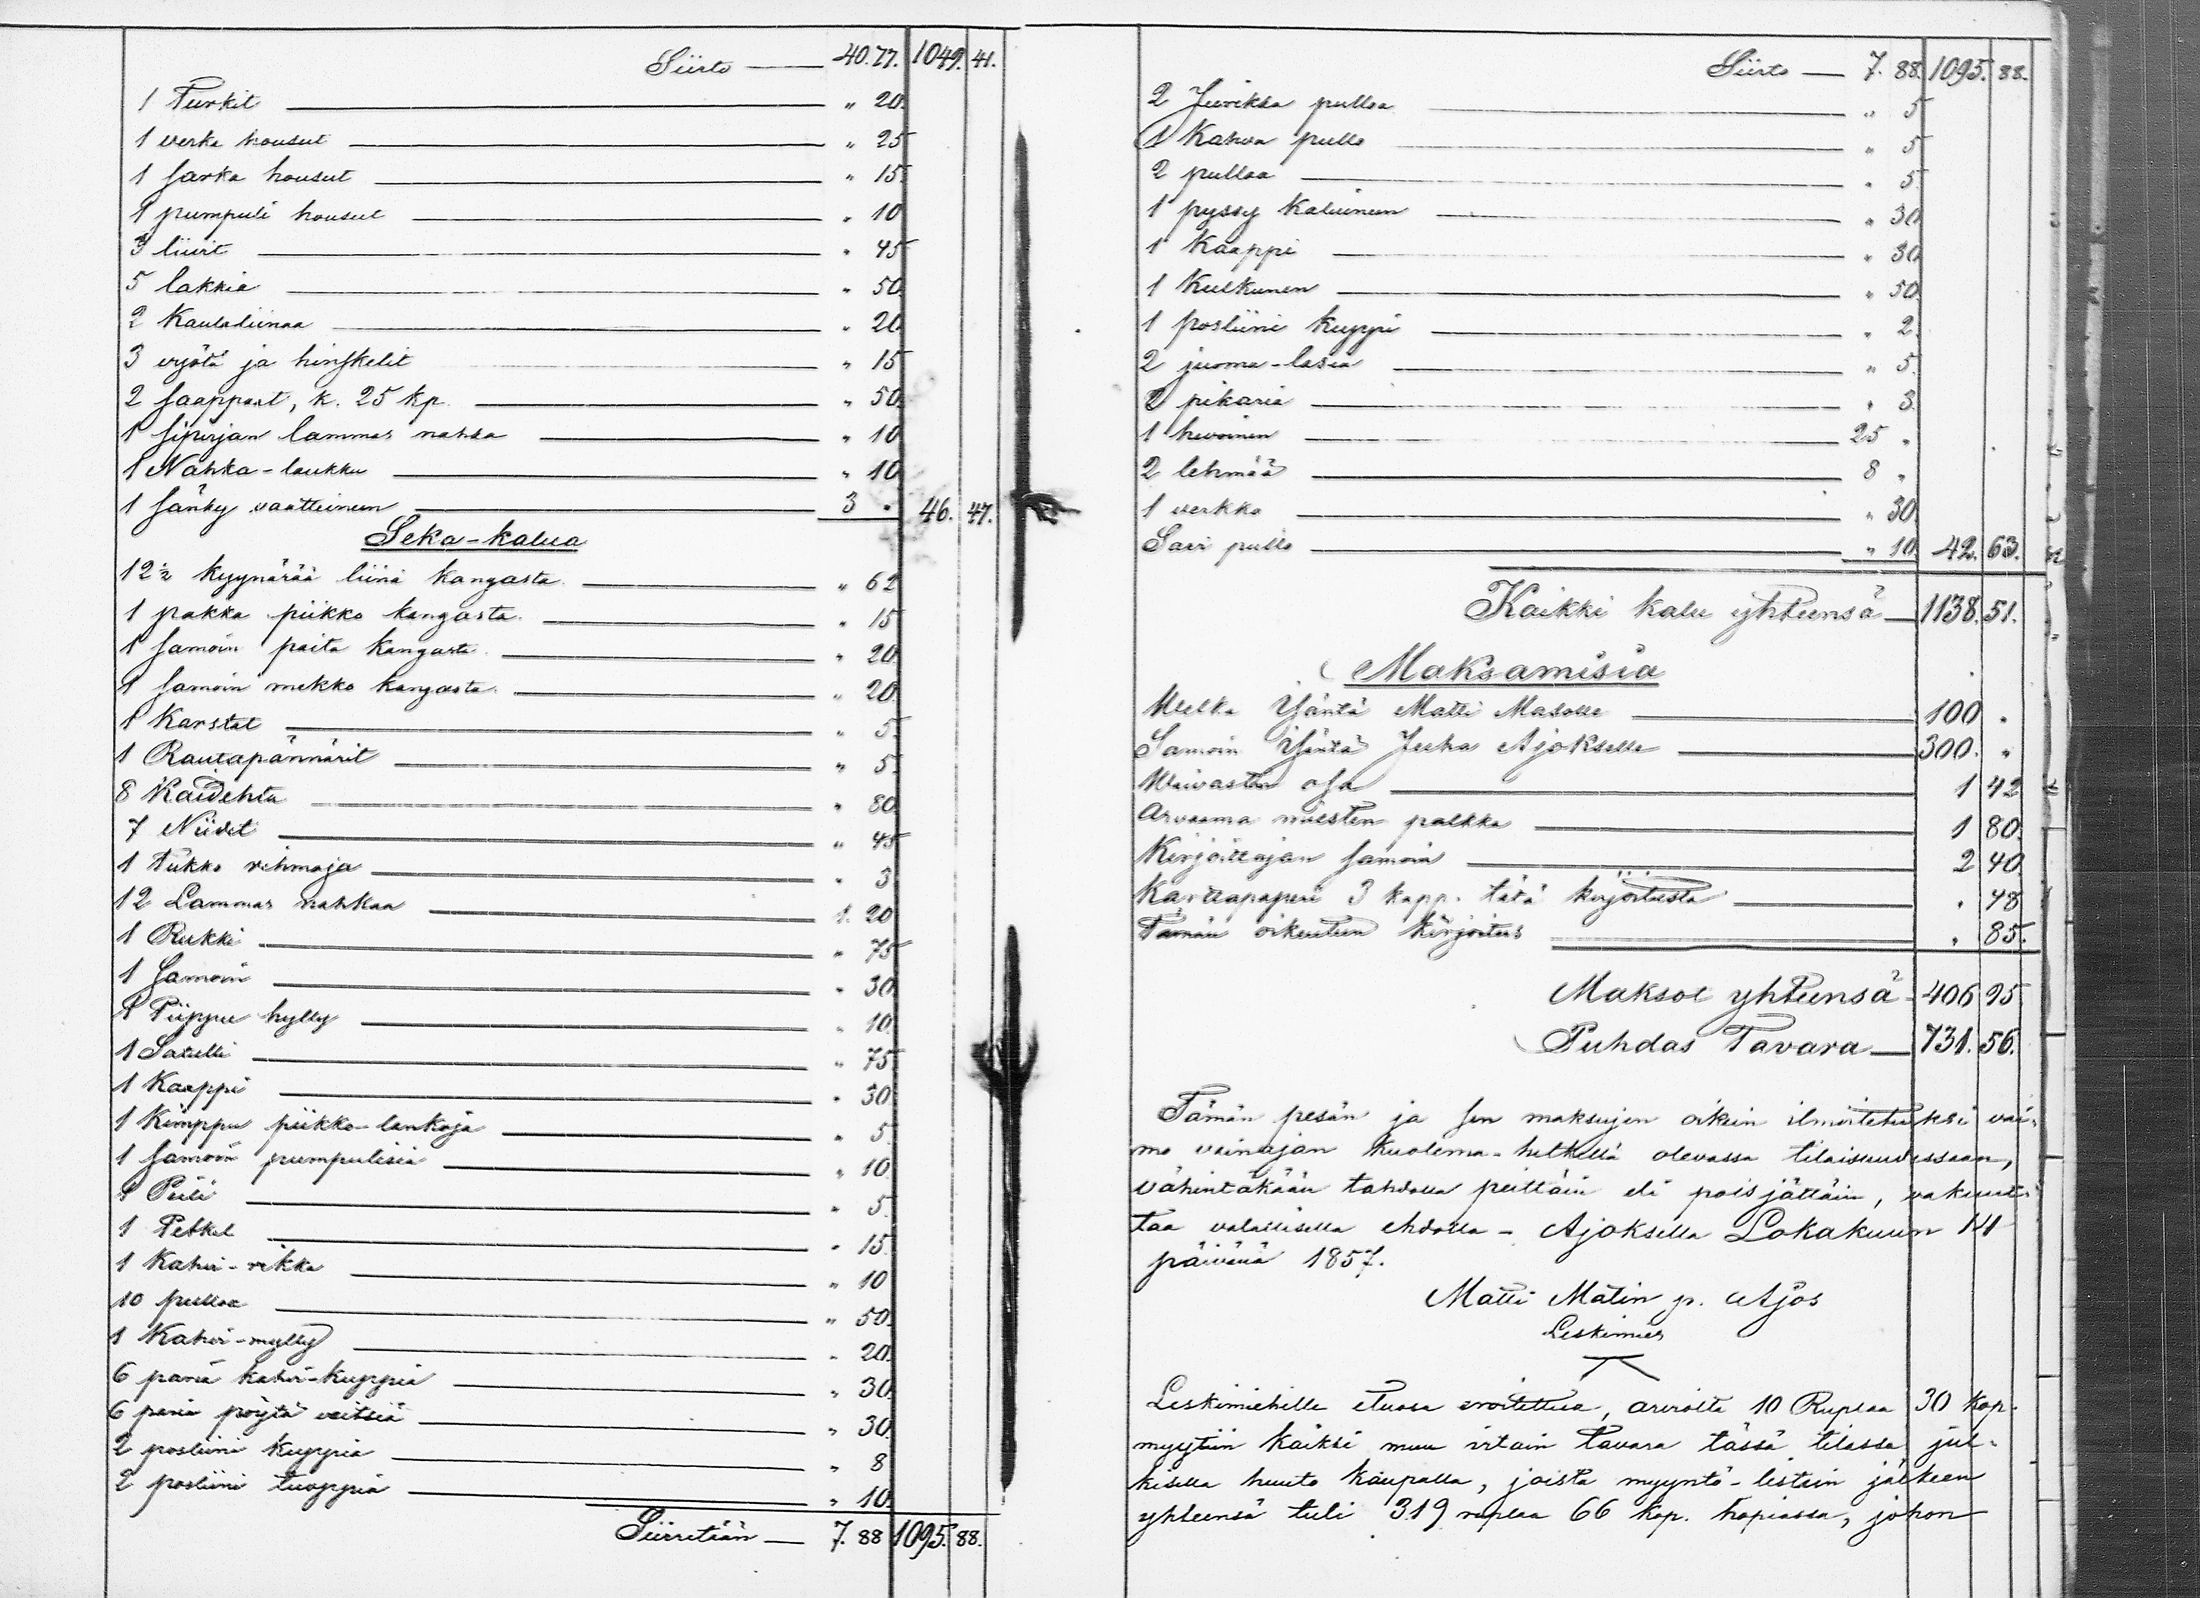 Siirto — 40.77. 1049. 41.
1 Turkit — " 20.
1 verka housut — " 25
1 sarka housut — " 15.
1 pumpuli housut — " 10
3 liivit — " 45
5 lakkia — " 50.
2 Kaulaliinaa — " 20
3 vyötä ja hinskelit — " 15
2 saappaat, k. 25 kp. — " 50.
1 siperjan lammas nahka — " 10
1 Nahka-laukku — " 10
1 sänky vaatteineen — 3 " 46. 47.
Seka-kalua
12½ kyynärää liina kangasta — " 62
1 pakka piikko kangasta — " 15
1 samoin paita kangasta — " 20.
1 samoin mekko kangasta — " 20.
1 Karstat — " 5.
1 Rautapännärit — " 5.
8 Kaidehta — " 80.
7 Niidet — " 45
1 tukko rihmoja — " 3
12 Lammas nahkaa — 1. 20
1 Rukki — " 75
1 Samoin — " 30.
1 Piippu hylly — " 10.
1 Satulli — " 75
1 Kaappi — " 30
1 Kimppu piikko-lankoja — " 5
1 samoin pumpulisia — " 10
1 Peili — " 5.
1 Petkel — " 15
1 Kahvi-rikka — " 10
10 pulloa — " 50.
1 Kahvi-mylly — " 20.
6 pariä kahvi-kuppia — " 30.
6 pariä pöytä veitsiä — " 30.
2 posliini kuppia — " 8
2 posliini tuoppia — " 10.
Siirretään — 7. 88 1095. 88.
Siirto — 7. 88. 1095. 88.
2 Juvikka pulloa — " 5
1 Kahva pullo — " 5
2 pulloa — " 5
1 pyssy kaluineen — " 30
1 Kaappi — " 30
1 Kulkunen — " 50.
1 posliini kuppi — " 2.
2 juoma-lasia — " 5.
2 pikaria — " 3.
1 hevoinen — 25 "
2 lehmää — 8 "
1 verkko — " 30
Savi pullo — " 10. 42. 63.
Kaikki kalu yhteensä — 1138. 51.
Maksamisia
Welka Isäntä Matti Masolle — 100 "
Samoin Isäntä Juha Ajokselle — 300. "
Waivasten osa — 1 42
Arvaama miesten palkka — 1 80.
Kirjoittajan samoin — 2 40
Karttapaperi 3 kapp. tätä kirjoitusta — " 48
Tämän oikeuteen kirjoitus — " 85.
Maksot yhteensä — 406 95
Puhdas Tavara — 731. 56.
Tämän pesän ja sen maksujen oikein ilmoitetuksi vai-
mo vainajan kuolema-hetkellä olevassa tilaisuudessaan,
vähintäkään tahdolla peittäin eli pois jättäin, vakuut-
taa valallisella ehdolla - Ajoksella Lokakuun 14
päivänä 1857.
Matti Matin p. Ajos
Leskimies
Leskimiehille etuosa eroitettua, arvolta 10 Ruplaa 30 kop.
myytiin kaikki muu irtain tavara tässä tilassa jul-
kisella huuto kaupalla, joista myynti-listain jälkeen
yhteensä tuli 319 ruplaa 66 kop. hopiassa, johon